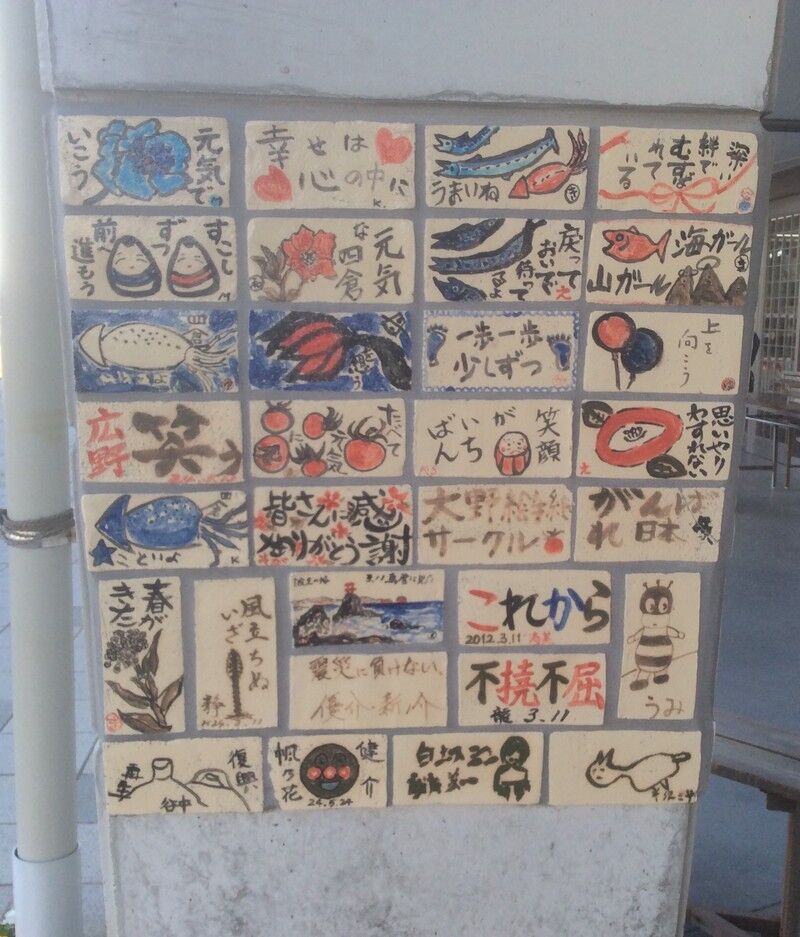 元気で
いこう
幸せは
心の中に
K.
うまいね
深い
絆で
むすば
れて
いる
すこし
ずつ
前へ
進もう
元気
な四倉
戻って
おいで
待って
るよ
海ガール
山ガール
四倉
一歩一歩
少しずつ
上を
向こう
広野
笑う
たべて
元気
笑顔
が
いち
ばん
思いやり
わすれない
こといよ
K
皆さんに感謝
ありがとう
大野絵手紙
サークル
がんば
れ日本
春が
きた
風立ちぬ
いざ
これから
2012.3.11
うみ
震災に負けない、
不撓不屈
龍 3.11
復興
谷中
健介
帆乃花
24.5.24